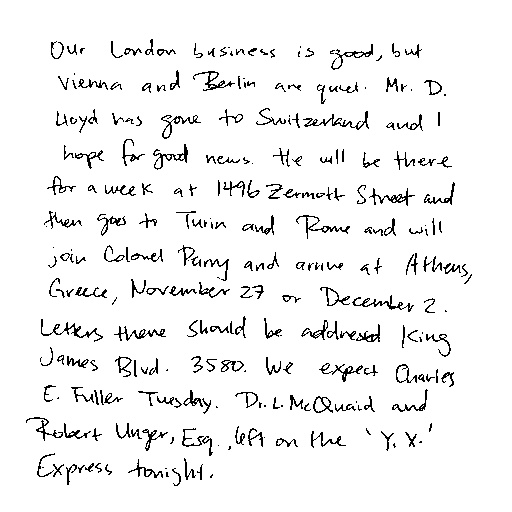 Our London business is good, but
Vienna and Berlin are quiet. Mr. D.
Lloyd has gone to Switzerland and I
hope for good news. He will be there
for a week at 1496 Zermott Street and
then goes to Turin and Rome and will
join Colonel Parry and arrive at Athens,
Greece, November 27 or December 2.
Letters there should be addressed King
James Blvd. 3580. We expect Charles
E. Fuller Tuesday. Dr. L. McQuaid and
Robert Unger, Esq., left on the 'Y.X.'
Express tonight.